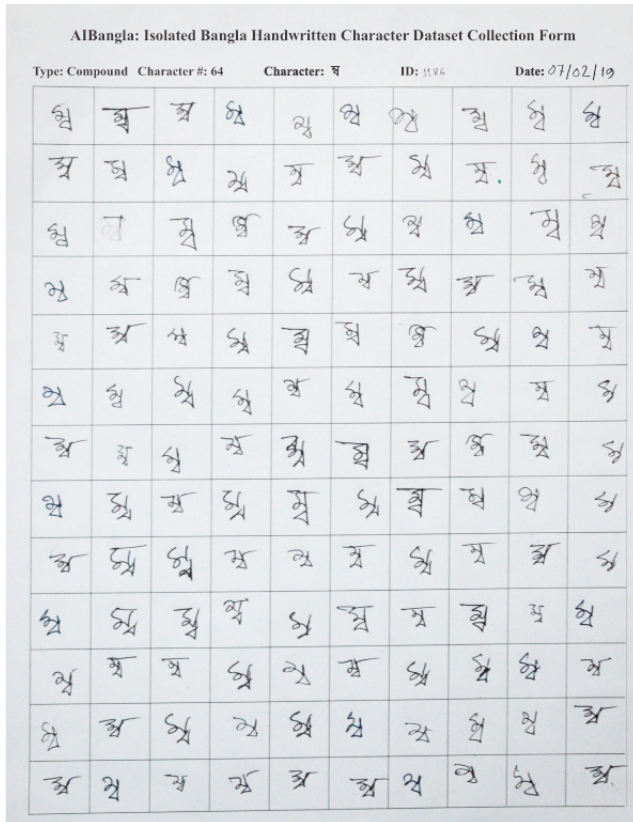 AIBangla: Isolated Bangla Handwritten Character Dataset Collection Form
Type: Compound Character #: 64 Character: ম্ব ID: Date: 07/02/19
ম্ব ম্ব ম্ব ম্ব ম্ব ম্ব ম্ব ম্ব ম্ব ম্ব
ম্ব ম্ব ম্ব ম্ব ম্ব ম্ব ম্ব ম্ব ম্ব ম্ব
ম্ব ম্ব ম্ব ম্ব ম্ব ম্ব ম্ব ম্ব ম্ব ম্ব
ম্ব ম্ব ম্ব ম্ব ম্ব ম্ব ম্ব ম্ব ম্ব ম্ব
ম্ব ম্ব ম্ব ম্ব ম্ব ম্ব ম্ব ম্ব ম্ব ম্ব
ম্ব ম্ব ম্ব ম্ব ম্ব ম্ব ম্ব ম্ব ম্ব ম্ব
ম্ব ম্ব ম্ব ম্ব ম্ব ম্ব ম্ব ম্ব ম্ব ম্ব
ম্ব ম্ব ম্ব ম্ব ম্ব ম্ব ম্ব ম্ব ম্ব ম্ব
ম্ব ম্ব ম্ব ম্ব ম্ব ম্ব ম্ব ম্ব ম্ব ম্ব
ম্ব ম্ব ম্ব ম্ব ম্ব ম্ব ম্ব ম্ব ম্ব ম্ব
ম্ব ম্ব ম্ব ম্ব ম্ব ম্ব ম্ব ম্ব ম্ব ম্ব
ম্ব ম্ব ম্ব ম্ব ম্ব ম্ব ম্ব ম্ব ম্ব ম্ব
ম্ব ম্ব ম্ব ম্ব ম্ব ম্ব ম্ব ম্ব ম্ব ম্ব